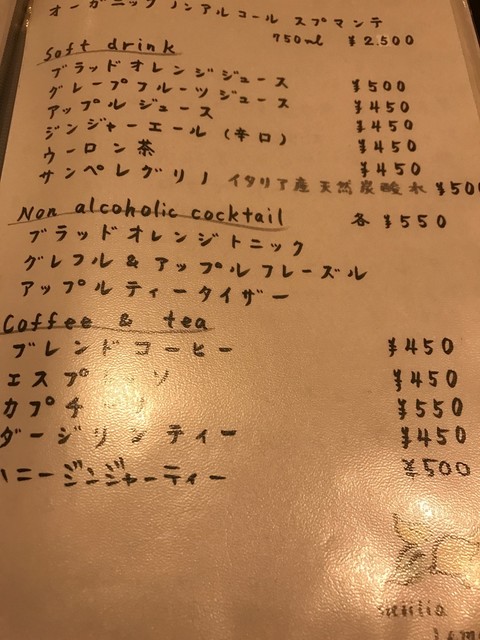 オーガニック ノンアルコール スプマンテ
750ml ¥2.500
Soft drink
ブラッドオレンジジュース ¥500
グレープフルーツジュース ¥450
アップルジュース ¥450
ジンジャーエール(辛口) ¥450
ウーロン茶 ¥450
サンペレグリノ イタリア産天然炭酸水 ¥500
Non alcoholic cocktail 各 ¥550
ブラッドオレンジトニック
グレフル&アップルフレーズル
アップルティータイザー
Coffee & tea
ブレンドコーヒー ¥450
エスプレッソ ¥450
カプチーノ ¥550
ダージリンティー ¥450
ハニージンジャーティー ¥500